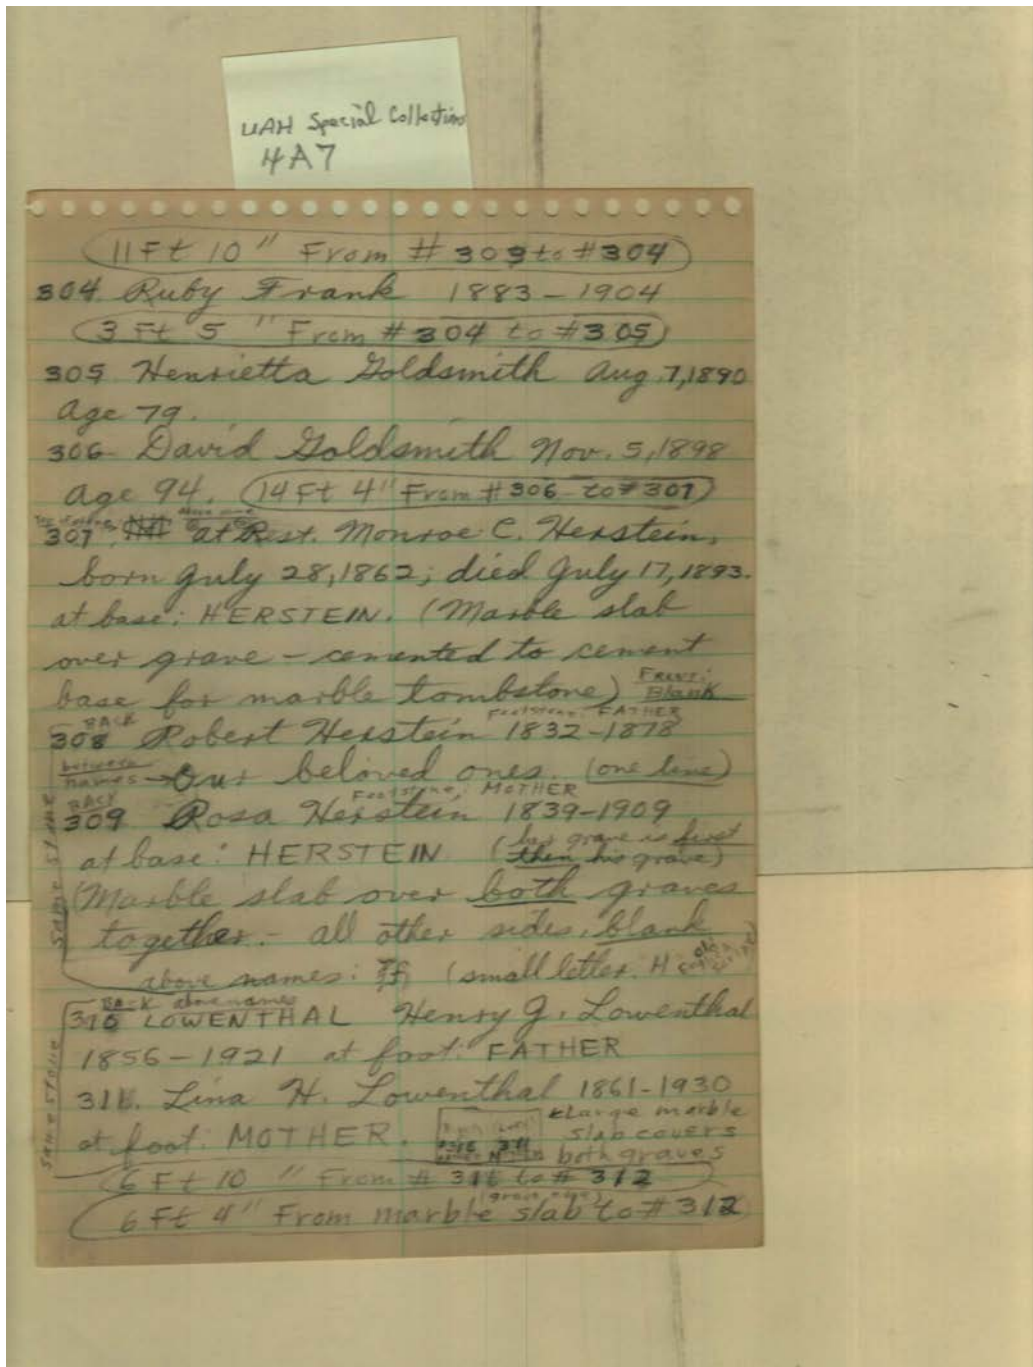 UAH Special Collections
4A7
11 Ft 10" From # 303 to # 304
304. Ruby Frank 1883-1904
3 Ft 5" From # 304 to # 305
305 Henrietta Goldsmith Aug. 7, 1890
age 79.
306- David Goldsmith Nov. 5, 1898
age 94. (14 Ft 4" From # 306 to # 307)
above name
307. at Rest. Monroe C. Herstein,
born July 28, 1862; died July 17, 1893.
at base: HERSTEIN. (Marble slab
over grave - cemented to cement
base for marble tombstone) Front: Blank
BACK Footstone: FATHER
308 Robert Herstein 1832-1878
between names → Our beloved ones. (one line)
BACK Footstone: MOTHER
309 Rosa Herstein 1839-1909
at base: HERSTEIN (her grave is first then his grave)
(Marble slab over both graves
together - all other sides, blank
above names: (small letter H
SAME STONE
BACK above names
310 LOWENTHAL Henry J. Lowenthal
1856-1921 at foot: FATHER
311. Lina H. Lowenthal 1861-1930
at foot: MOTHER. Large marble slab covers both graves
Same Stone
6 Ft 10" From # 311 to # 312
6 Ft 4" From marble slab to # 312